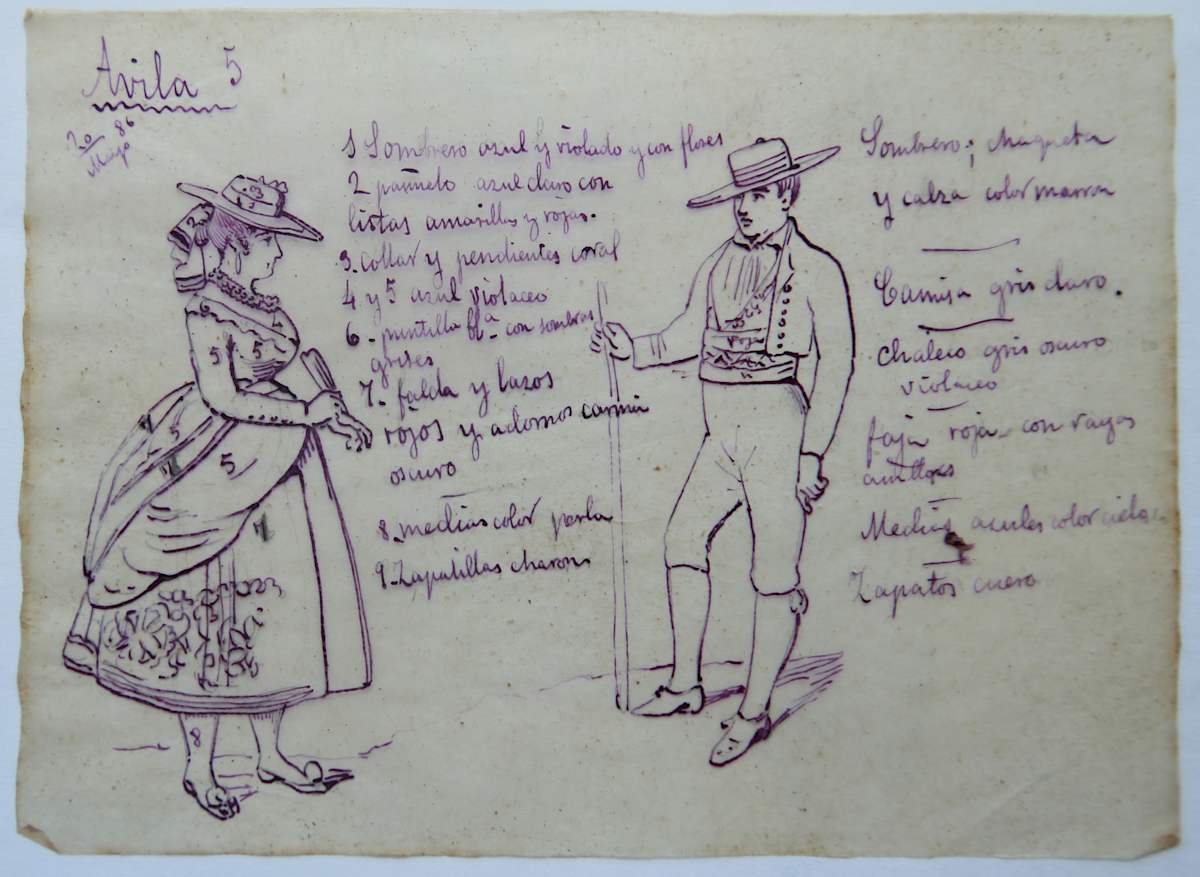 Avila 5
20 Mayo 86
1 Sombrero azul y violado y con flores
2 pañuelo azul claro con
listas amarillas y rojas.
3. Collar y pendientes coral
4 y 5 azul violaceo
6. puntilla bla con sombras
grises
7. falda y lazos
rojos y adornos carmin
oscuro
8. medias color perla
9. Zapatillas charons
Sombrero; chaqueta
y calza color marron
Camisa gris claro.
chaleco gris oscuro
violaceo
faja roja con rayas
Medias azules color cielo
Zapatos cuero
3
2
5
5
5
5
7
8